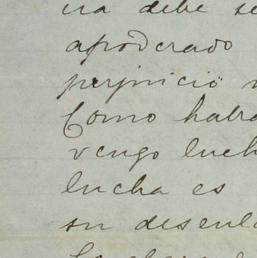 debe se
apoderado
perjuicio
Como habra
vengo luch
lucha es
su desenla